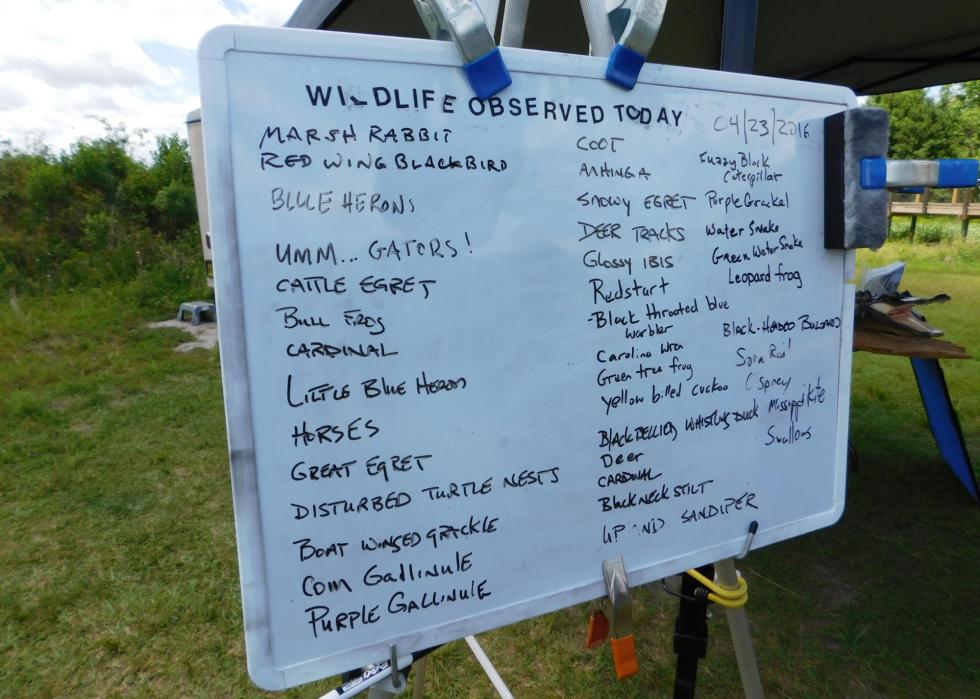 WILDLIFE OBSERVED TODAY
04/23/2016
MARSH RABBIT
RED WING BLACKBIRD
BLUE HERONS
UMM... GATORS!
CATTLE EGRET
BULL FROG
CARDINAL
LITTLE BLUE HERON
HORSES
GREAT EGRET
DISTURBED TURTLE NESTS
BOAT WINGED GRACKLE
COM GALLINULE
PURPLE GALLINULE
COOT
ANHINGA
SNOWY EGRET
DEER TRACKS
Glossy IBIS
Redstart
Black throated blue
warbler
Carolina Wren
Green tree frog
Yellow billed cuckoo
BLACK BELLIED WHISTLING DUCK
Deer
CARDINAL
BLACK NECK STILT
SANDIPER
Fuzzy Black
Caterpillar
Purple Grackel
Water Snake
Green Water Snake
Leopard frog
BLACK-HEADED BUZZARD
Sora Rail
Osprey
Mississippi Kite
Swallows